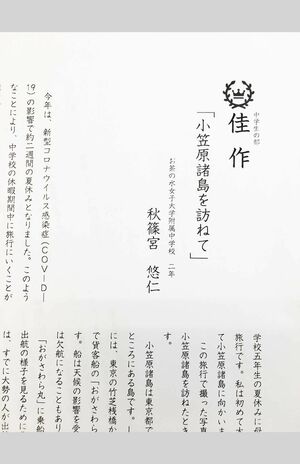 中学生の部
佳作
「小笠原諸島を訪ねて」
お茶の水女子大学附属中学校 二年
秋篠宮 悠仁
今年は、新型コロナウイルス感染症(COVID-
19)の影響で約二週間の夏休みとなりました。このよう
なことにより、中学校の休暇期間中に旅行にいくことが
学校五年生の夏休みに母
旅行です。私は初めて大
て小笠原諸島に向かいま
この旅行で撮った写真
小笠原諸島を訪ねたとき
す。
小笠原諸島は東京都で
ところにある島です。し
には、東京の竹芝桟橋か
て貨客船の「おがさわら
す。船は天候の影響を受
は欠航になることもあり
「おがさわら丸」に乗船
出航の様子を見るために
は、すでに大勢の人が出